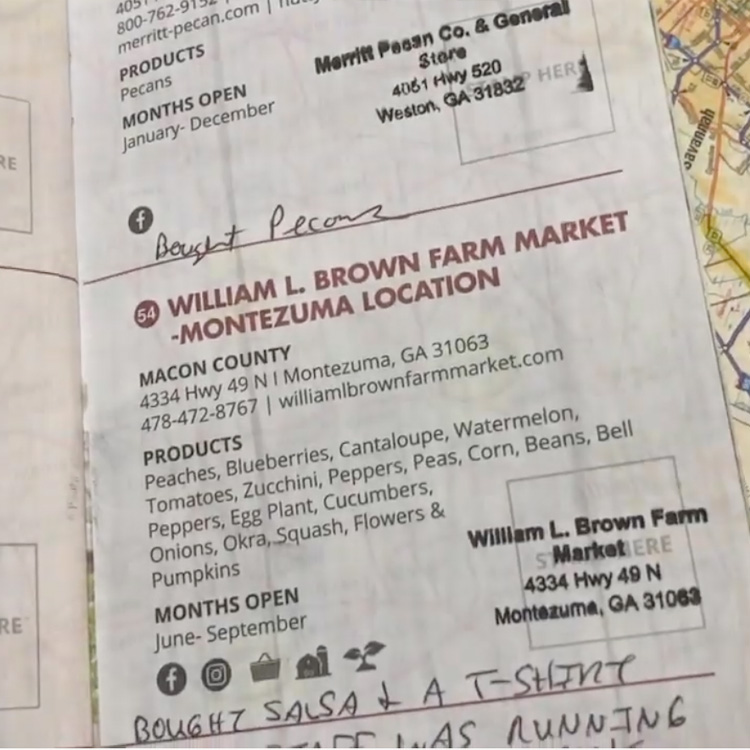 800-762-9152
merritt-pecan.com |
PRODUCTS
Pecans
MONTHS OPEN
January- December
Merritt Pecan Co. & General
Store
4051 Hwy 520
Weston, GA 31832
HERE
Bought Pecans
54 WILLIAM L. BROWN FARM MARKET
-MONTEZUMA LOCATION
MACON COUNTY
4334 Hwy 49 N | Montezuma, GA 31063
478-472-8767 | williamlbrownfarmmarket.com
PRODUCTS
Peaches, Blueberries, Cantaloupe, Watermelon,
Tomatoes, Zucchini, Peppers, Peas, Corn, Beans, Bell
Peppers, Egg Plant, Cucumbers,
Onions, Okra, Squash, Flowers &
Pumpkins
William L. Brown Farm
Market
4334 Hwy 49 N
Montezuma, GA 31063
MONTHS OPEN
June- September
BOUGHT SALSA & A T-SHIRT
WAS RUNNING
RE
RE
Savannah